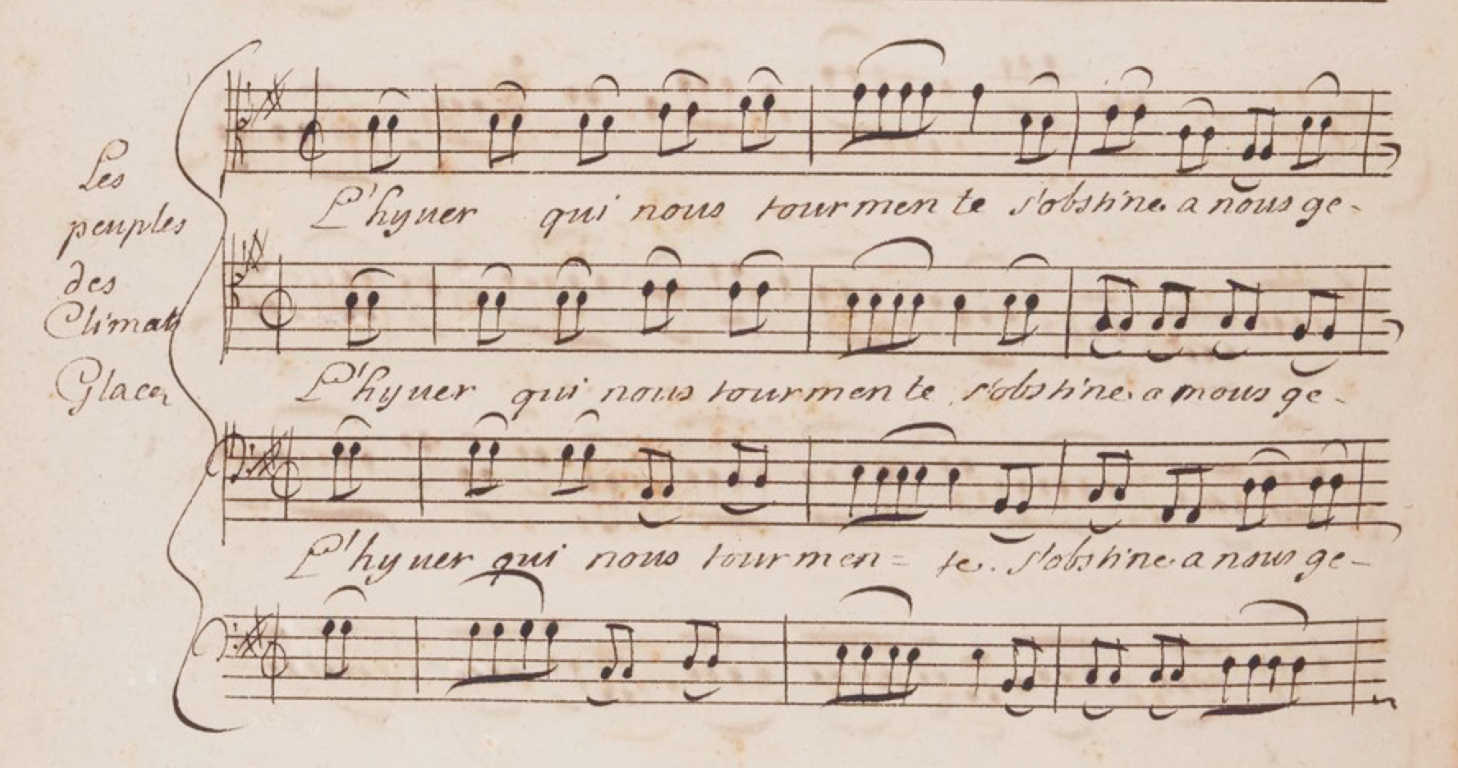 Les
peuples
des
Climats
Glacez
L'hyuer qui nous tourmen te s'obstine a nous ge-
L'hyuer qui nous tourmen te s'obstine a nous ge-
L'hyuer qui nous tourmen= te. s'obstine a nous ge-